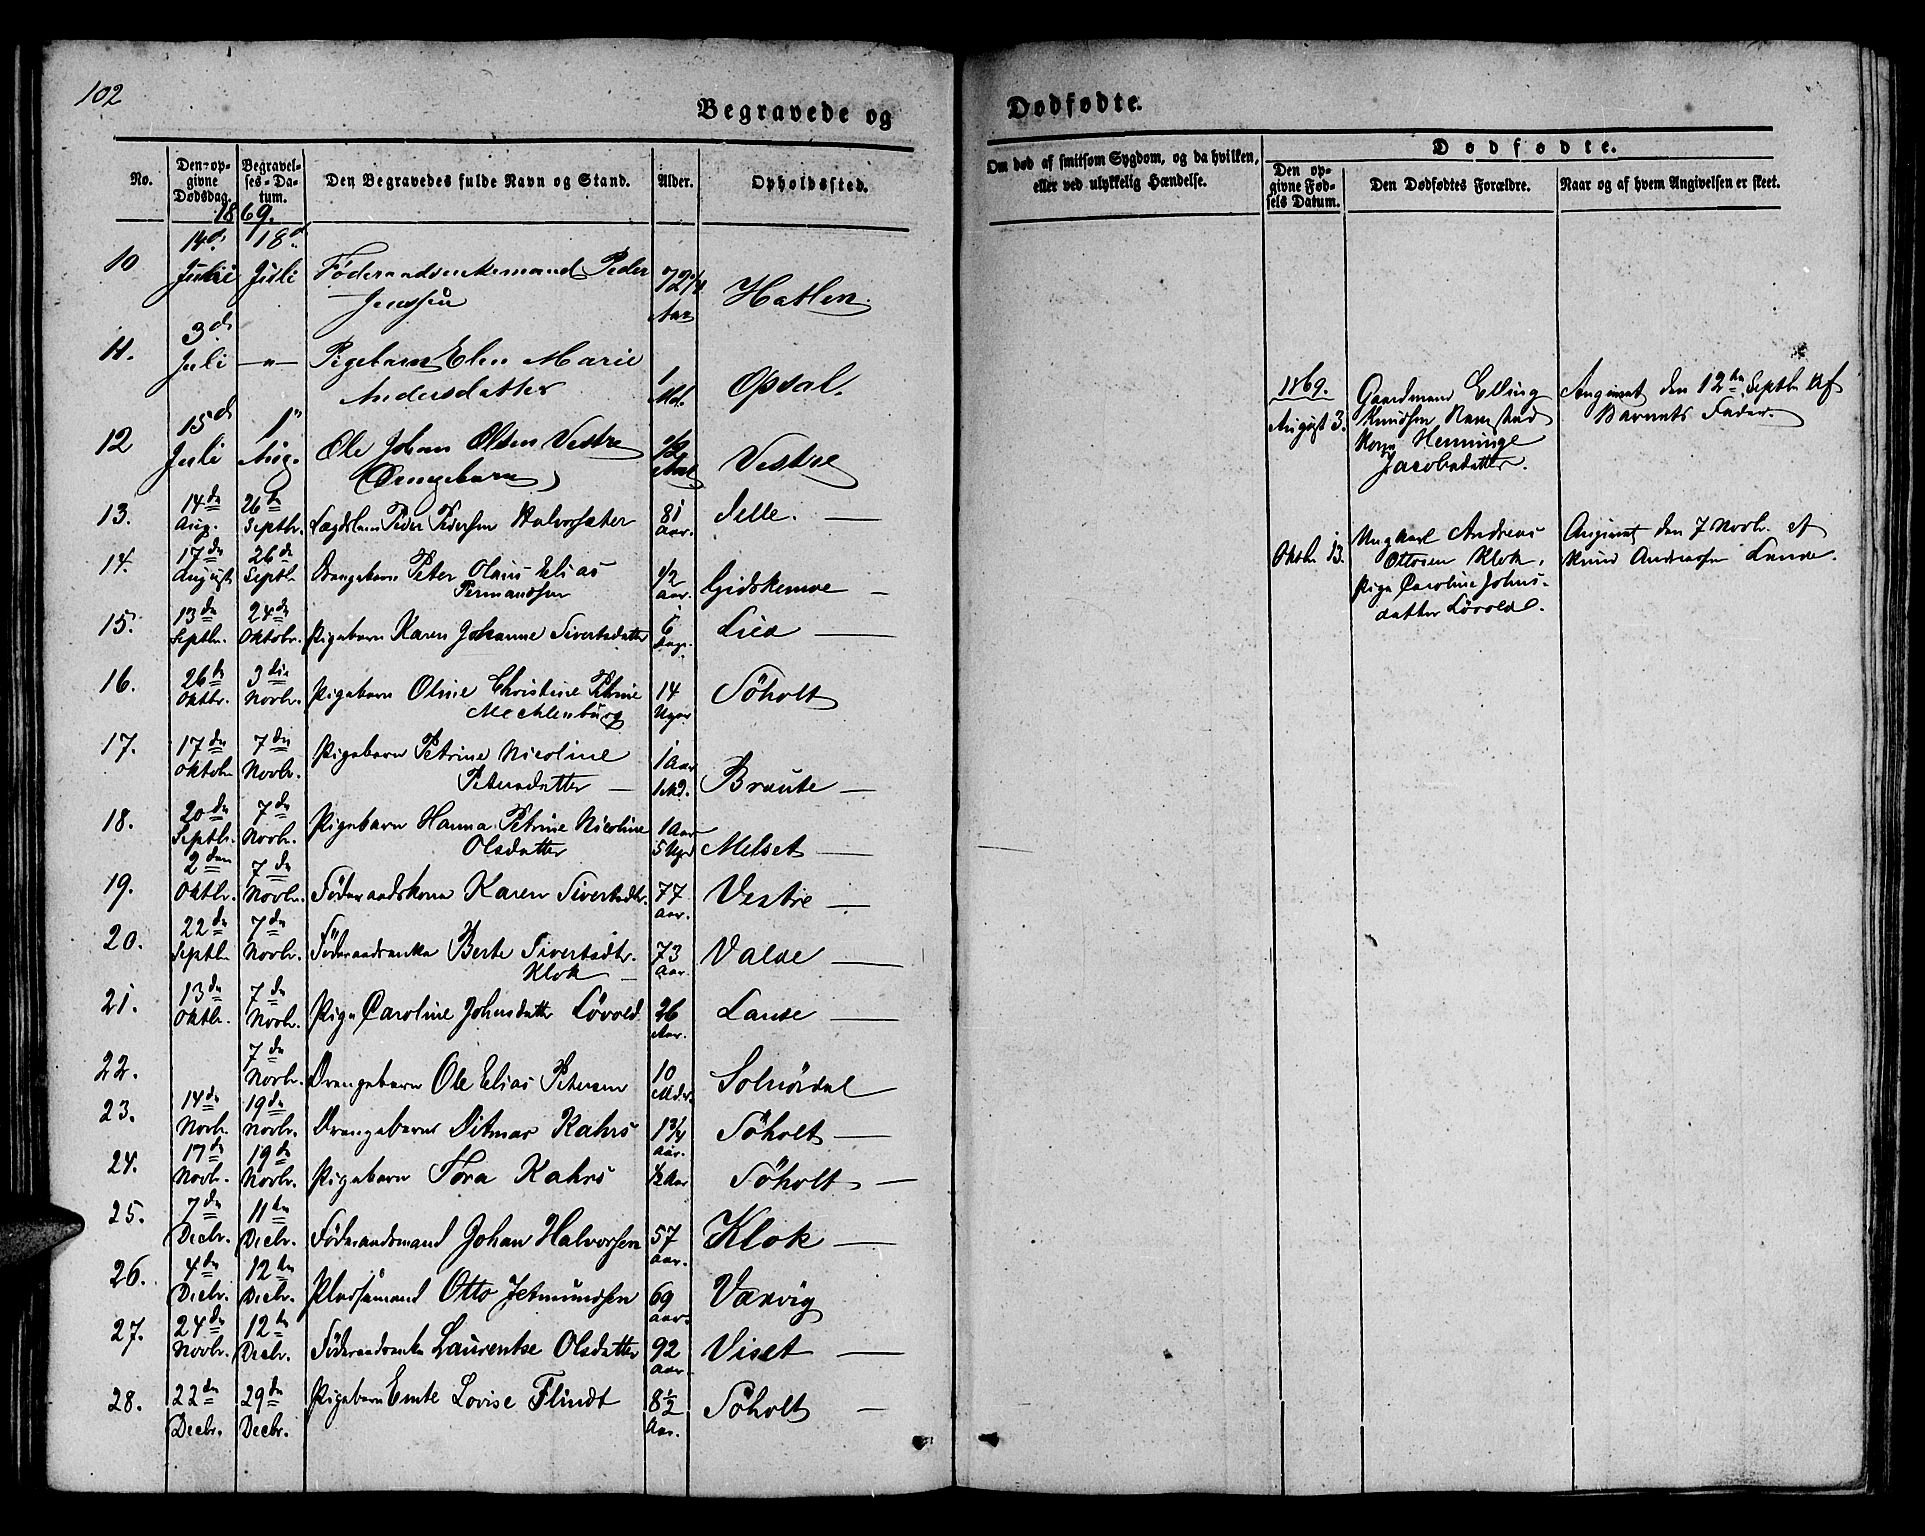 102
Begravede og
Dødfødte.
No.
Den opgivne Dødsdag.
Begravelses-Datum.
Den Begravedes fulde Navn og Stand.
Alder.
Opholdssted.
Om død af smitsom Sygdom, og da hvilken, eller ved ulykkelig Hændelse.
Dødfødte.
Den opgivne Fødsels Datum.
Den Dødfødtes Forældre.
Naar og af hvem Angivelsen er skeet.
1869.
10 14de Juli 18de Juli Føderaadsenkemand Peder Jenssen 72 1/4 Aar Hatlen
11. 3de Juli — " — Pigebarn Elen Marie Andersdatter 1 Md. Opsal.
12 15de Juli 1ste Aug. Ole Johan Olsen Vestre (Drengebarn) 1/2 Aar Vestre
13. 14de Aug. 26de Septbr. Lægdslem Peder Pedersen Halvorsæter 81 Aar. Selle. —
14. 17de August 26de Septbr Drengebarn Peter Olaus Elias Permandsen 1/2 Aar. Gidskemoe —
15. 13de Septbr. 24de Oktobr. Pigebarn Karen Johanne Sivertsdatter 6 Dage. Lied —
16. 26de Oktbr. 3die Novbr. Pigebarn Oline Christine Petrine Mechlenburg 14 Uger Söholt
17. 17de Oktobr 7de Novbr. Pigebarn Petrine Nicoline Petersdatter — 1 Aar 1 Md. Braute —
18. 20de Septbr. 7de Novbr. Pigebarn Hanna Petrine Nicoline Olsdatter 1 Aar 5 Uger Melset —
19. 2den Oktbr. 7de Novbr. Föderaadskone Karen Sivertsdtr. 77 Aar. Vestre —
20. 22de Septbr 7de Novbr. Föderaadsenke Berte Sivertsdtr. Klok — 73 Aar. Valde —
21. 13de Oktbr. 7de Novbr. Pige Caroline Johnsdatter Lövold 26 Aar. Lande —
22. 7de Novbr. Drengebarn Ole Elias Petersen 10 Mdr. Solnördal
23. 14de Novbr. 19de Novbr. Drengebarn Ditmar Kahrs 1 3/4 Aar. Söholt —
24. 17de Novbr. 19de Novbr. Pigebarn Thora Kahrs 1/2 Aar Söholt —
25. 7de Decbr. 11te Decbr. Föderaadsmand Johan Halvorsen 57 Aar. Klok —
26. 4de Decbr. 12te Decbr. Pladsemand Otto Jetmundsen 69 Aar. Vaxvig
27. 24de Novbr. 12te Decbr. Föderaadsenke Laurentse Olsdatter 92 Aar. Viset —
28. 22de Decbr. 29de Decbr. Pigebarn Emte Lovise Flindt 8 1/2 Aar. Söholt —
1869.
August 3. Gaardmand Elling Knudsen Ramstad Kone Henninge Jacobsdatter. Angivet den 12te Septbr af Barnets Fader.
Oktbr 13. Ungkarl Andreas Ottosen Klok, Pige Caroline Johnsdatter Lövold. Angivet den 7 Novbr. af Knud Andreasen Lande.